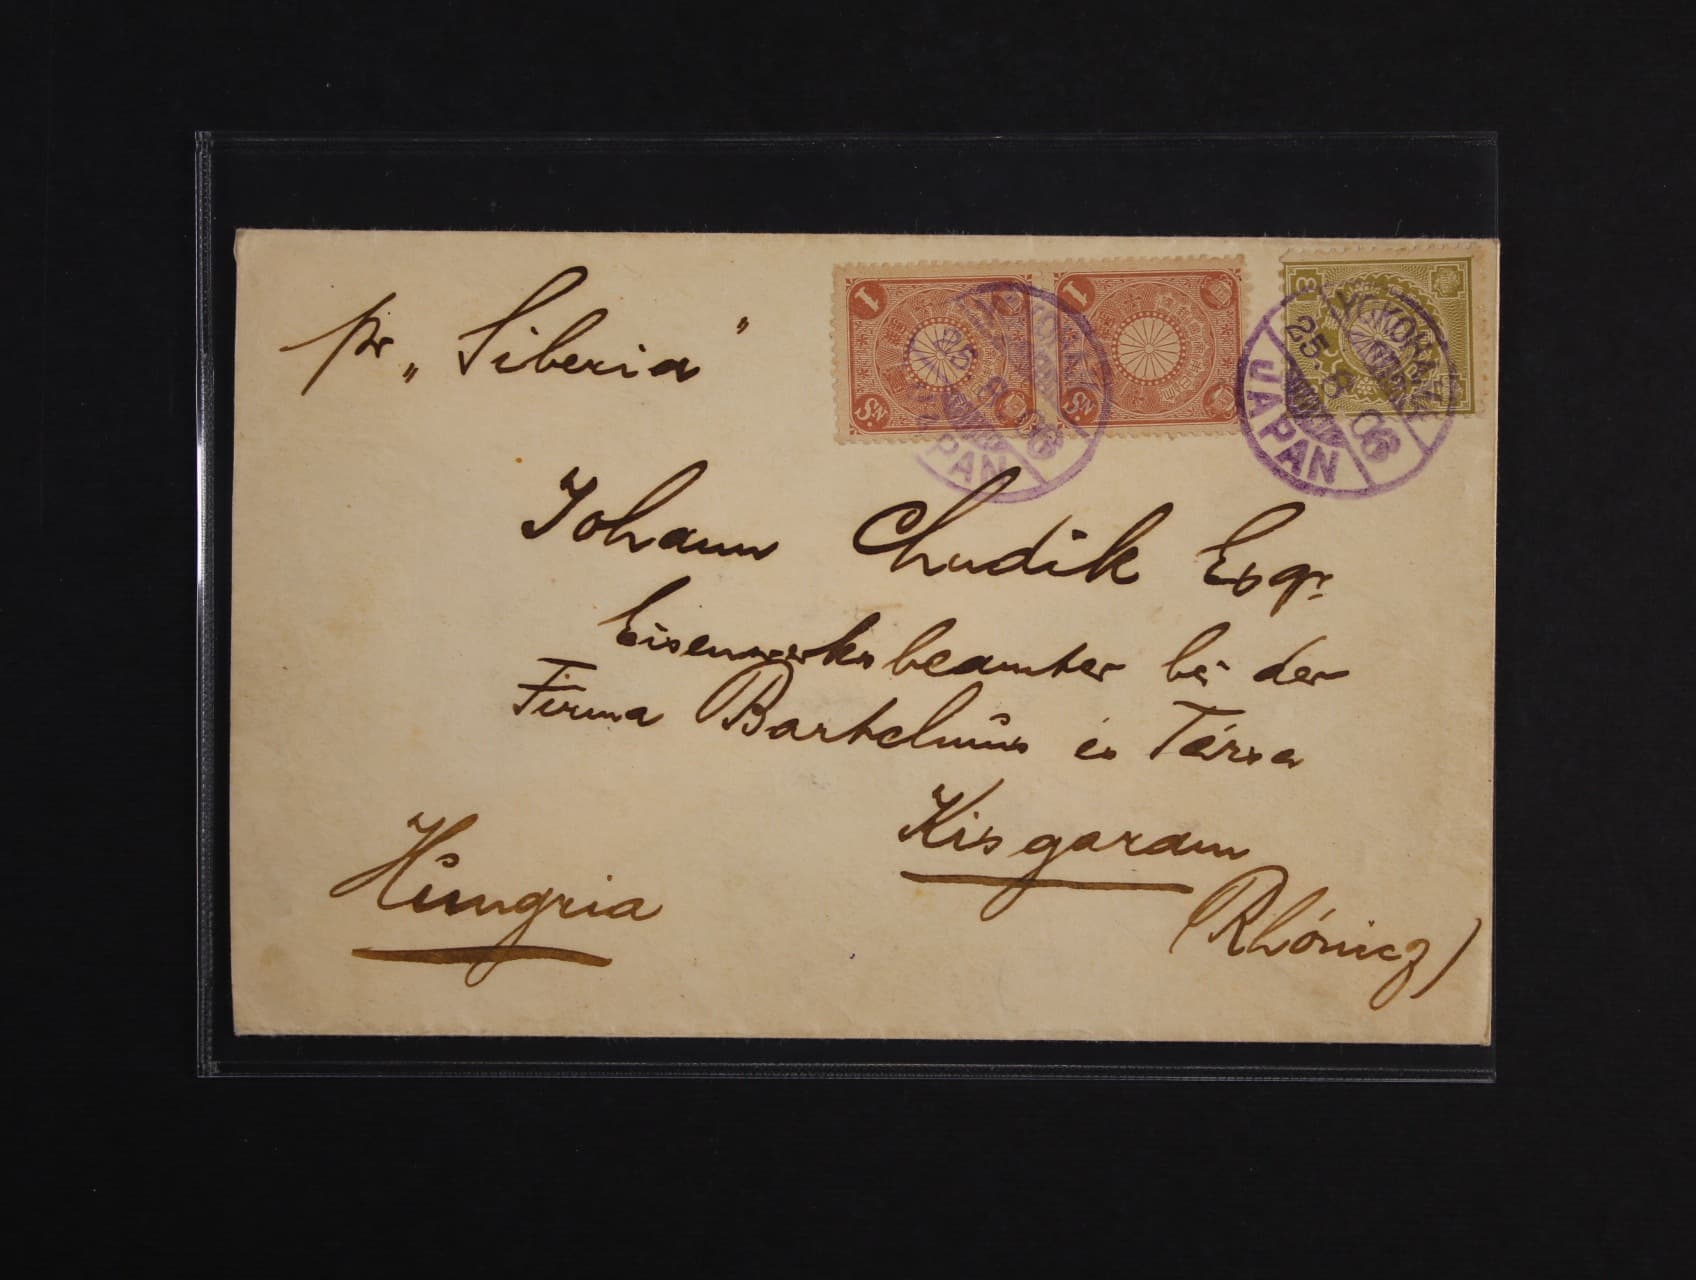 pr „Siberia"
1 Sn. 1 Sn.
YOKOHAMA 25.8.06 JAPAN
8 YOKOHAMA 25.8.06 JAPAN
Johann Chudik Esqr.
Eisenwerksbeamter bei der
Firma Bartelmus és Társa
Kisgaram
(Rhónicz)
Hungria